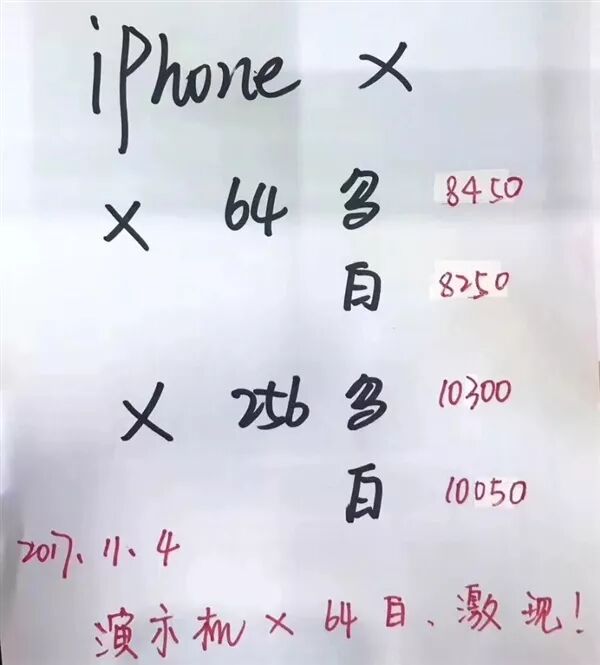 iPhone X
X 64 多 8450
白 8250
X 256 多 10300
白 10050
2017、11、4
演示机 X 64 白、激现!